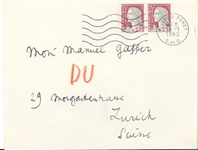 1963
Monr Manuel Gasser
DU
29 Morgartenstrasse
Zurich
Suisse